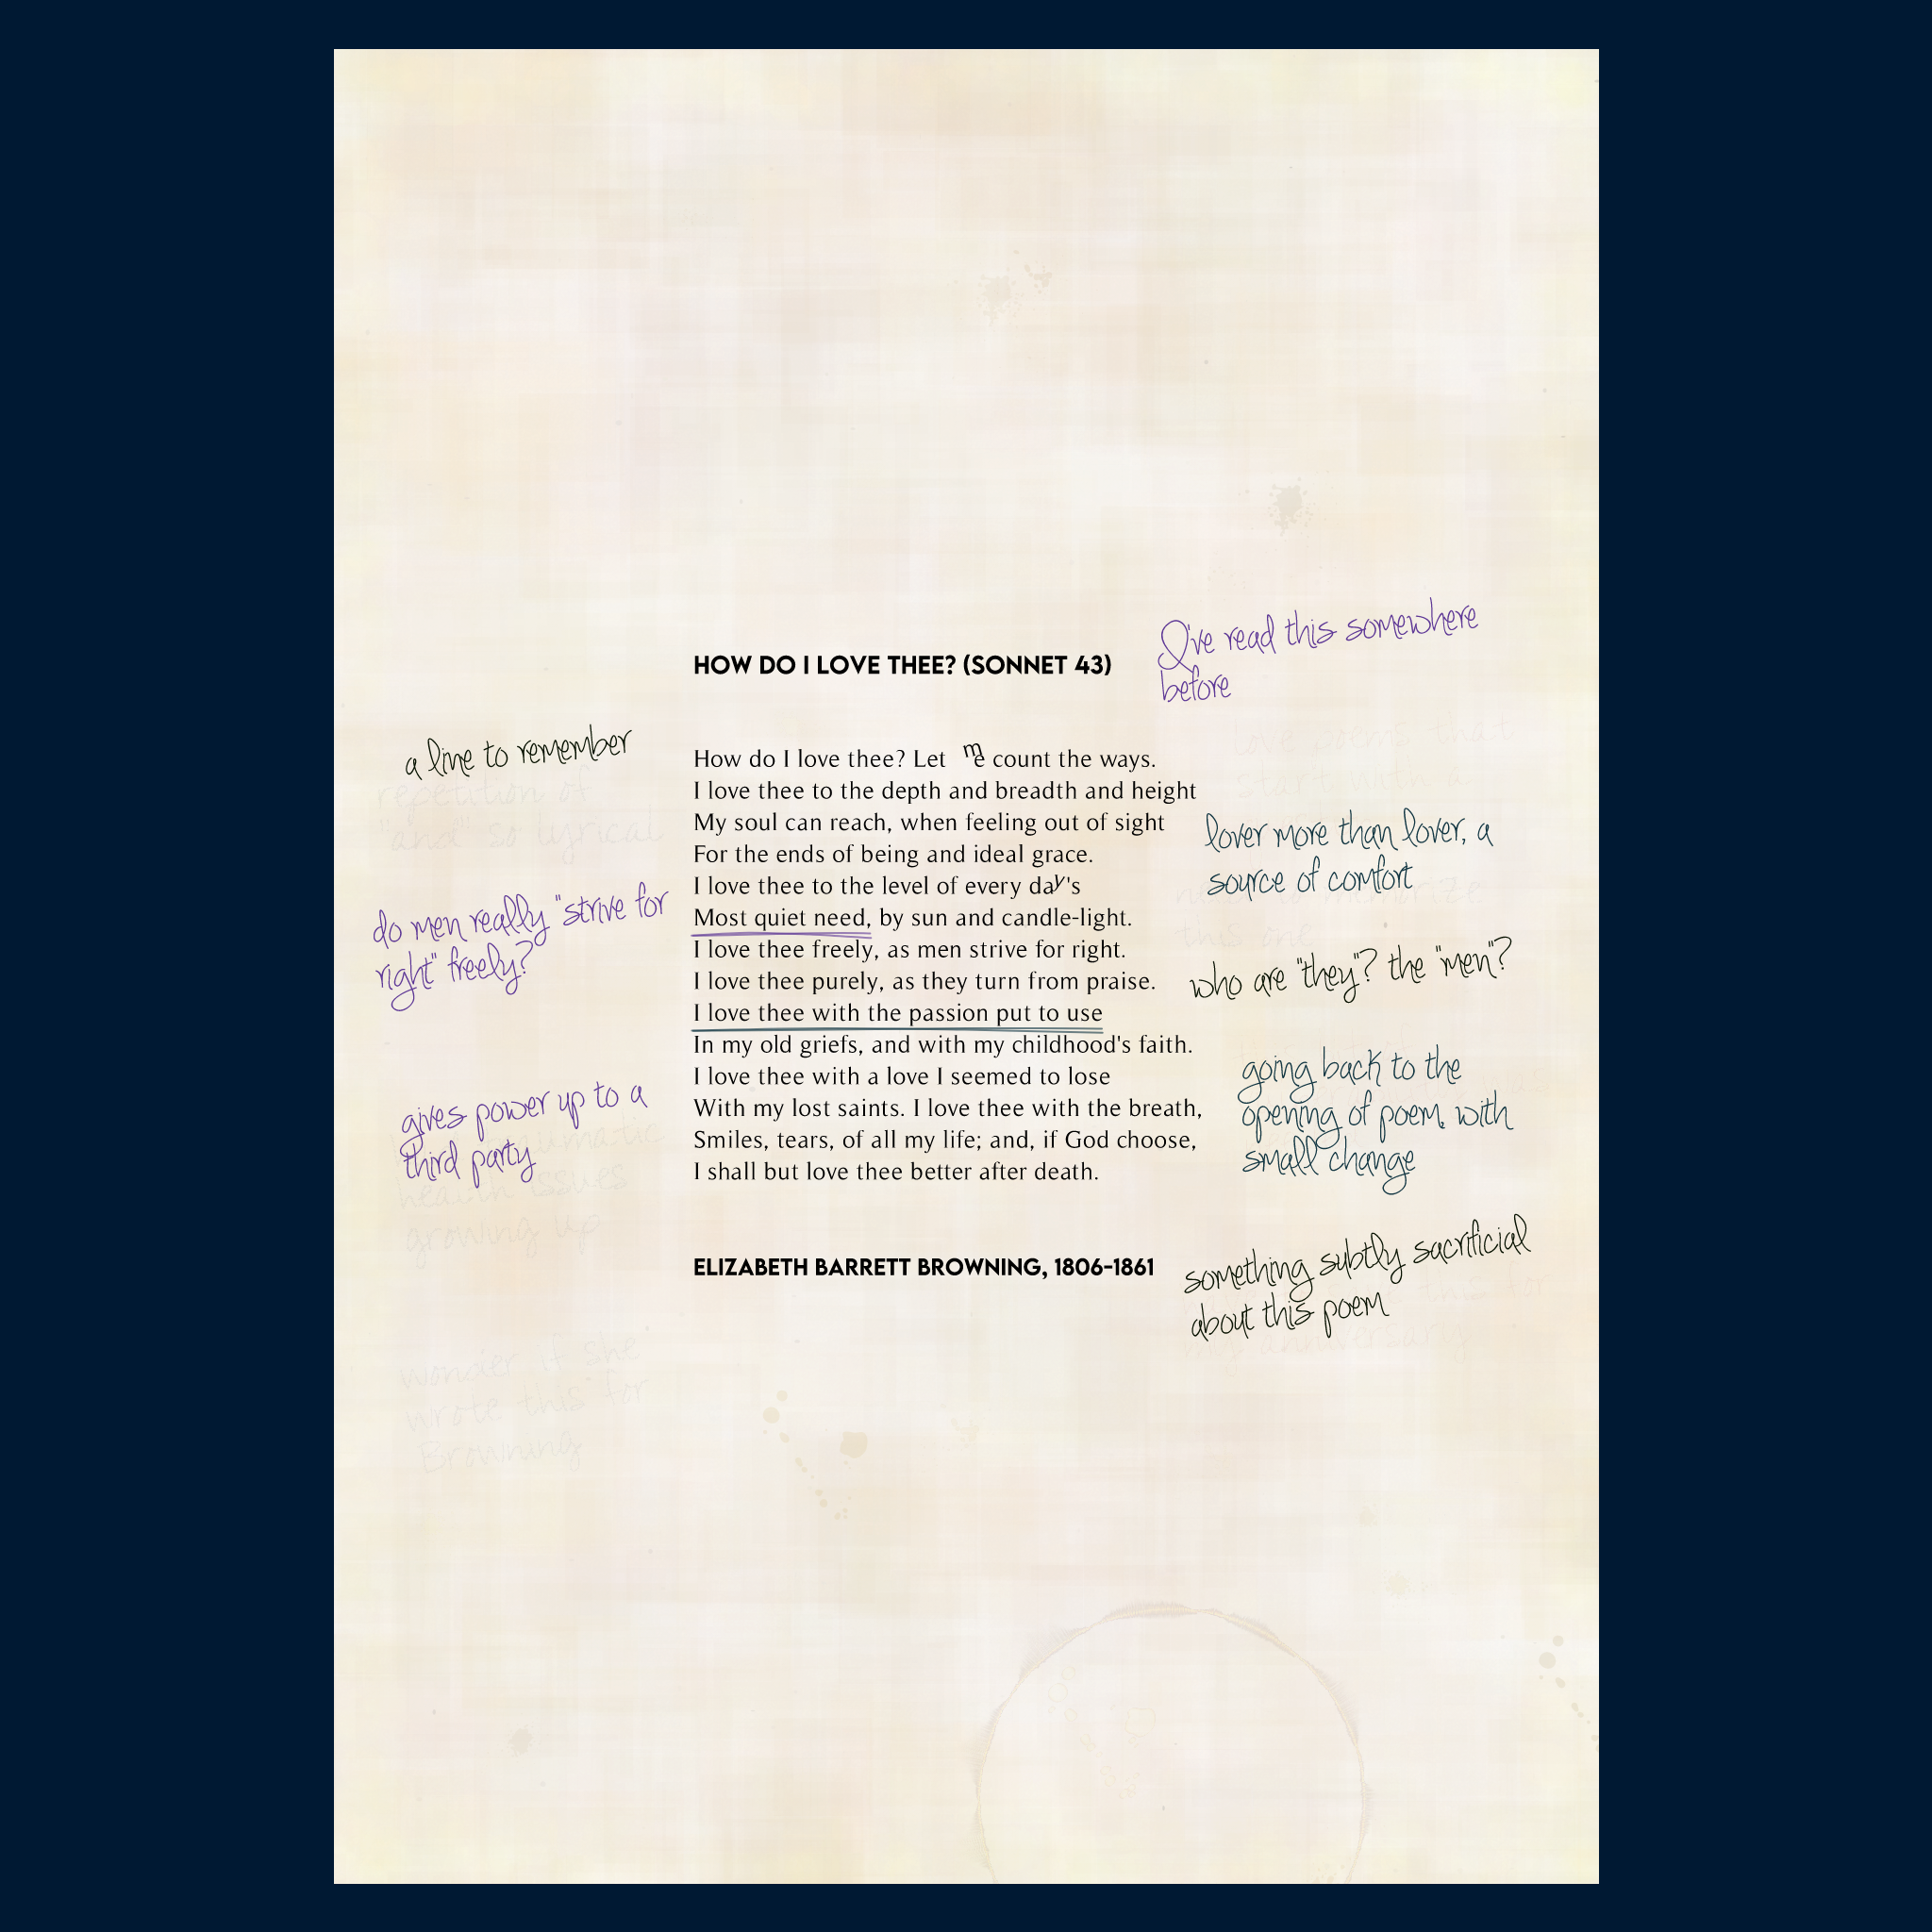 I've read this somewhere
before
HOW DO I LOVE THEE? (SONNET 43)
a line to remember
How do I love thee? Let me count the ways.
I love thee to the depth and breadth and height
My soul can reach, when feeling out of sight
For the ends of being and ideal grace.
I love thee to the level of every day's
Most quiet need, by sun and candle-light.
I love thee freely, as men strive for right.
I love thee purely, as they turn from praise.
I love thee with the passion put to use
In my old griefs, and with my childhood's faith.
I love thee with a love I seemed to lose
With my lost saints. I love thee with the breath,
Smiles, tears, of all my life; and, if God choose,
I shall but love thee better after death.
ELIZABETH BARRETT BROWNING, 1806-1861
repetition of
"and" so lyrical
do men really "strive for
right" freely?
gives power up to a
third party
health issues
growing up
wonder if she
wrote this for
Browning
love poems that
start with a
lover more than lover, a
source of comfort
need to memorize
this one
who are "they"? the "men"?
going back to the
opening of poem, with
small change
something subtly sacrificial
about this poem
my anniversary